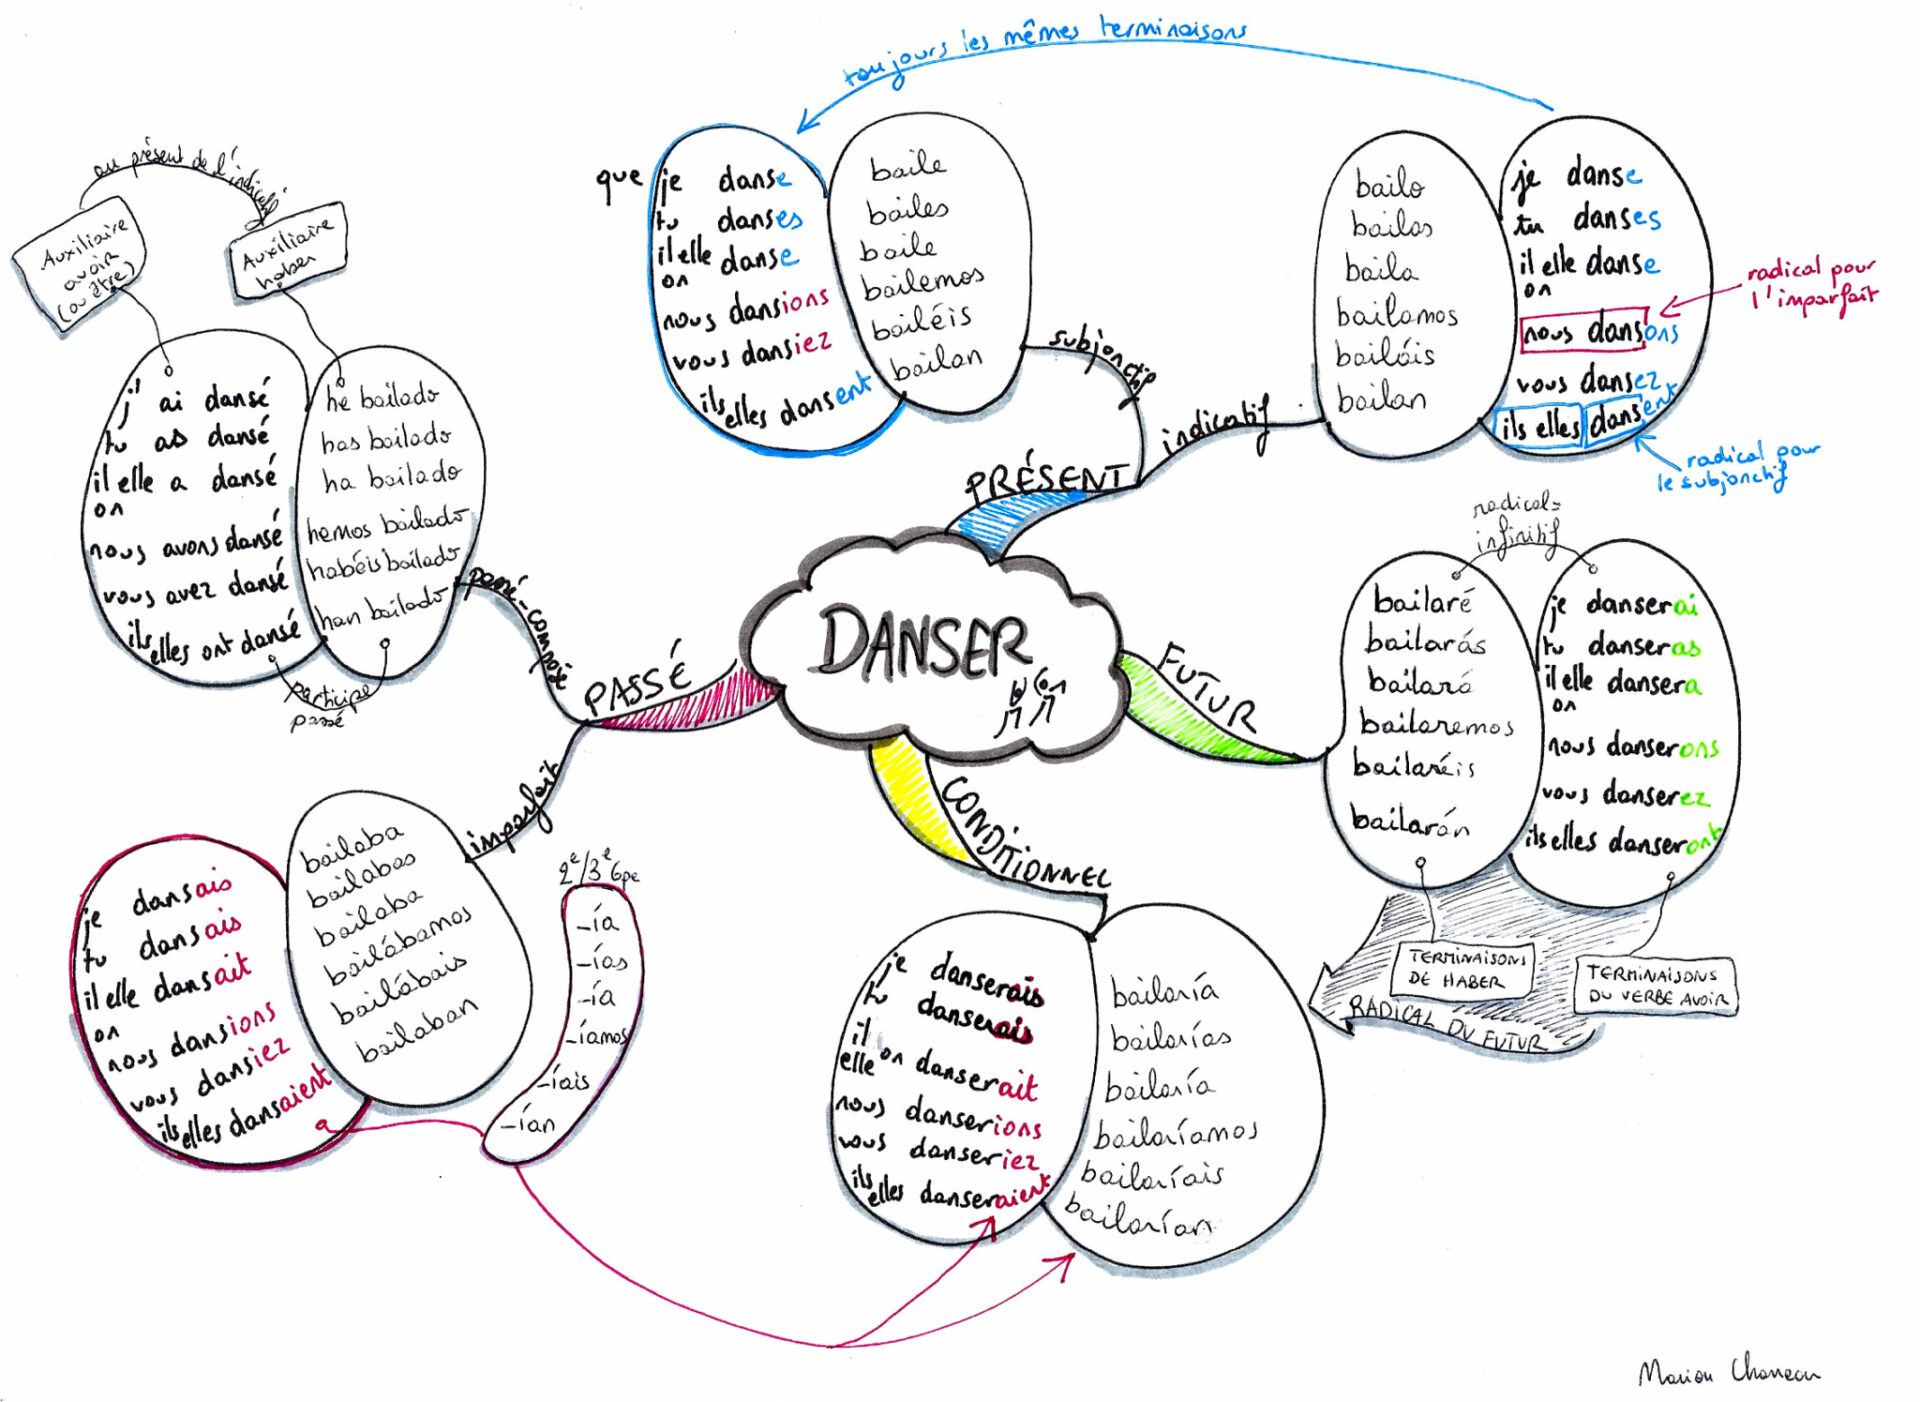 toujours les mêmes terminaisons
que je danse
tu danses
il elle danse
on
nous dansions
vous dansiez
ils elles dansent
baile
bailes
baile
bailemos
bailéis
bailan
subjonctif
bailo
bailas
baila
bailamos
bailáis
bailan
je danse
tu danses
il elle danse
on
nous dansons
vous dansez
ils elles dansent
radical pour
l'imparfait
radical pour
le subjonctif
indicatif
PRÉSENT
au présent de l'indicatif
Auxiliaire
avoir
(ou être)
Auxiliaire
haber
j' ai dansé
tu as dansé
il elle a dansé
on
nous avons dansé
vous avez dansé
ils elles ont dansé
he bailado
has bailado
ha bailado
hemos bailado
habéis bailado
han bailado
participe
passé
passé-composé
PASSÉ
DANSER
FUTUR
radical =
infinitif
bailaré
bailarás
bailará
bailaremos
bailaréis
bailarán
je danserai
tu danseras
il elle dansera
on
nous danserons
vous danserez
ils elles danseront
TERMINAISONS
DE HABER
TERMINAISONS
DU VERBE AVOIR
RADICAL DU FUTUR
imparfait
je dansais
tu dansais
il elle dansait
on
nous dansions
vous dansiez
ils elles dansaient
bailaba
bailabas
bailaba
bailábamos
bailábais
bailaban
2e/3e Gpe
-ía
-ías
-ía
-íamos
-íais
-ían
CONDITIONNEL
je danserais
tu danserais
il on danserait
elle
nous danserions
vous danseriez
ils elles danseraient
bailaría
bailarías
bailaría
bailaríamos
bailaríais
bailarían
Marion